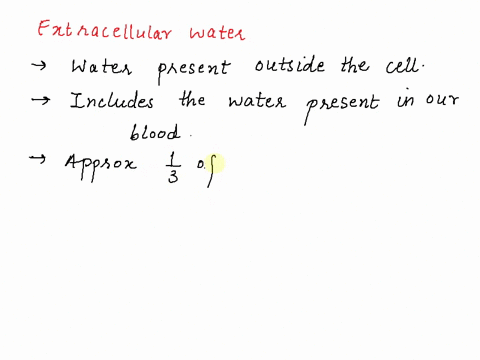 Extracellular water
→ Water present outside the cell.
→ Includes the water present in our
blood.
→ Approx 1/3 of